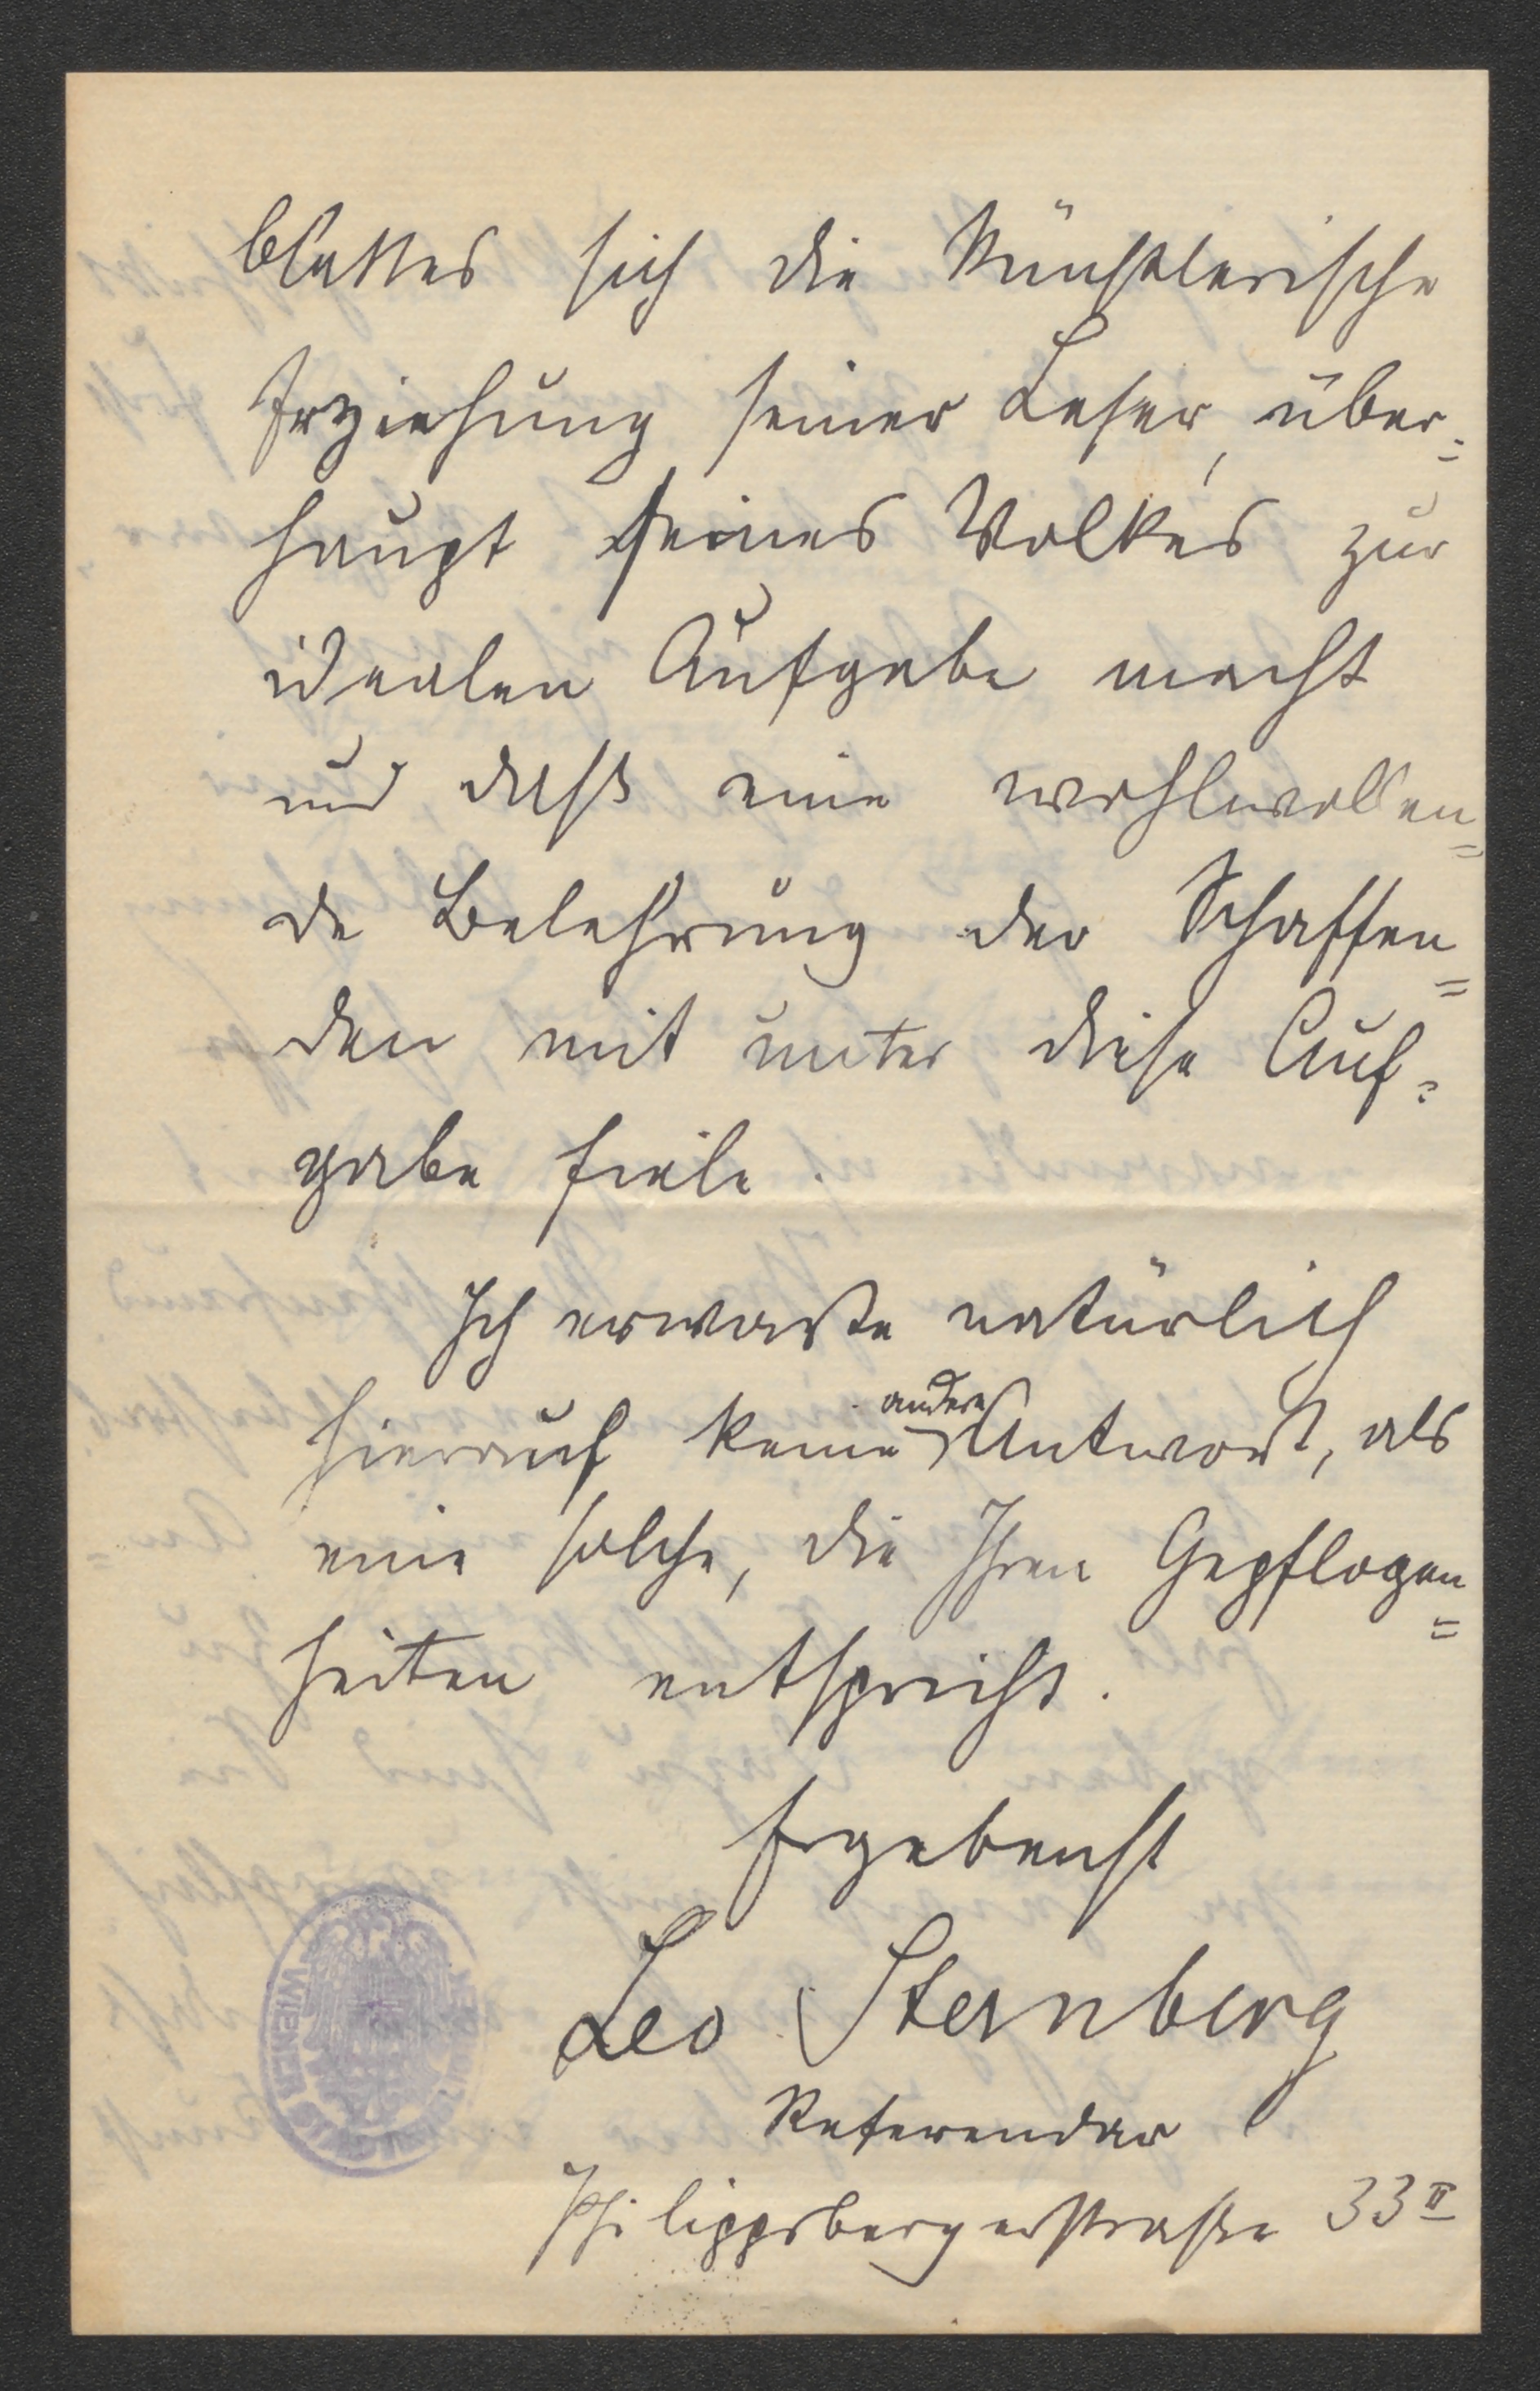 blattes sich die künstlerische
Erziehung seiner Leser, über=
haupt seines Volkes zur
idealen Aufgabe macht
und daß eine wohlwollen=
de Belehrung der Schaffen=
den mit unter diese Auf=
gabe fiele.
Ich erwarte natürlich
andere
hierauf keine Antwort, als
eine solche, die Ihren Gepflogen=
heiten entspricht.
Ergebenst
Leo Sternberg
Referendar
Philippsbergerstraße 33 II
WIENER STADTBIBLIOTHEK